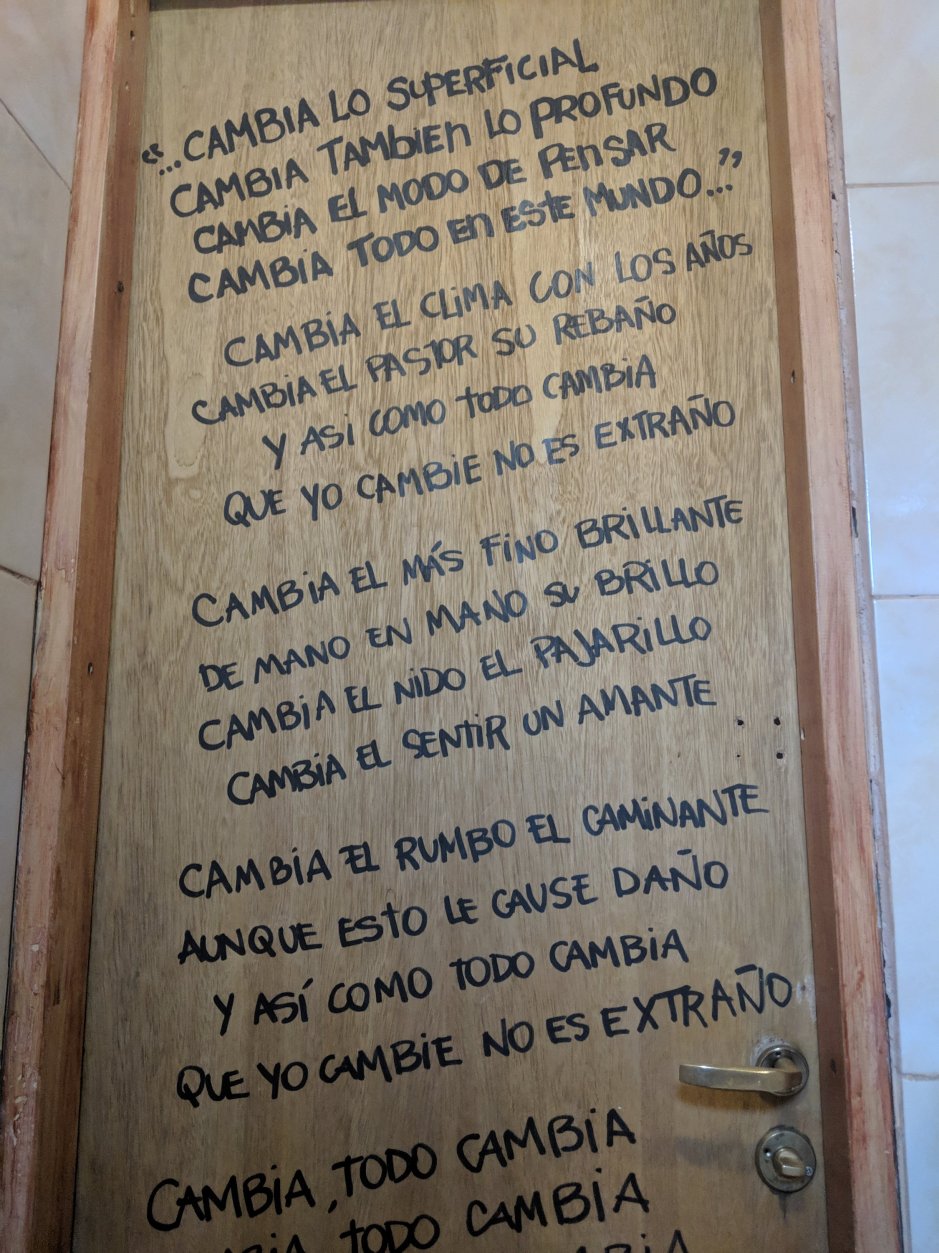 “...CAMBIA LO SUPERFICIAL
CAMBIA TAMBIEN LO PROFUNDO
CAMBIA EL MODO DE PENSAR
CAMBIA TODO EN ESTE MUNDO...”
CAMBIA EL CLIMA CON LOS AÑOS
CAMBIA EL PASTOR SU REBAÑO
Y ASI COMO TODO CAMBIA
QUE YO CAMBIE NO ES EXTRAÑO
CAMBIA EL MÁS FINO BRILLANTE
DE MANO EN MANO SU BRILLO
CAMBIA EL NIDO EL PAJARILLO
CAMBIA EL SENTIR UN AMANTE
CAMBIA EL RUMBO EL CAMINANTE
AUNQUE ESTO LE CAUSE DAÑO
Y ASÍ COMO TODO CAMBIA
QUE YO CAMBIE NO ES EXTRAÑO
CAMBIA, TODO CAMBIA
TODO CAMBIA